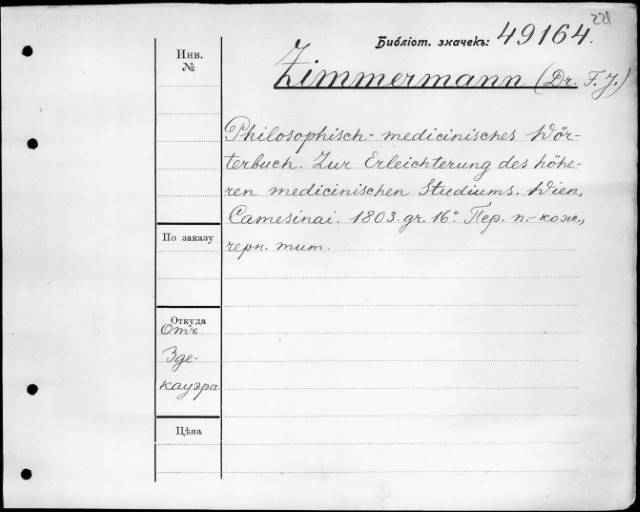 221
Библіот. значекъ: 49164.
Инв.
№
Zimmermann (Dr. F. J.)
Philosophisch-medicinisches Wör-
terbuch. Zur Erleichterung des höhe-
ren medicinischen Studiums. Wien,
Camesinai. 1803. gr. 16° Пер. п.-кож.,
черн. тит.
По заказу
Откуда
Отъ
Зде-
кауэра
Цѣна